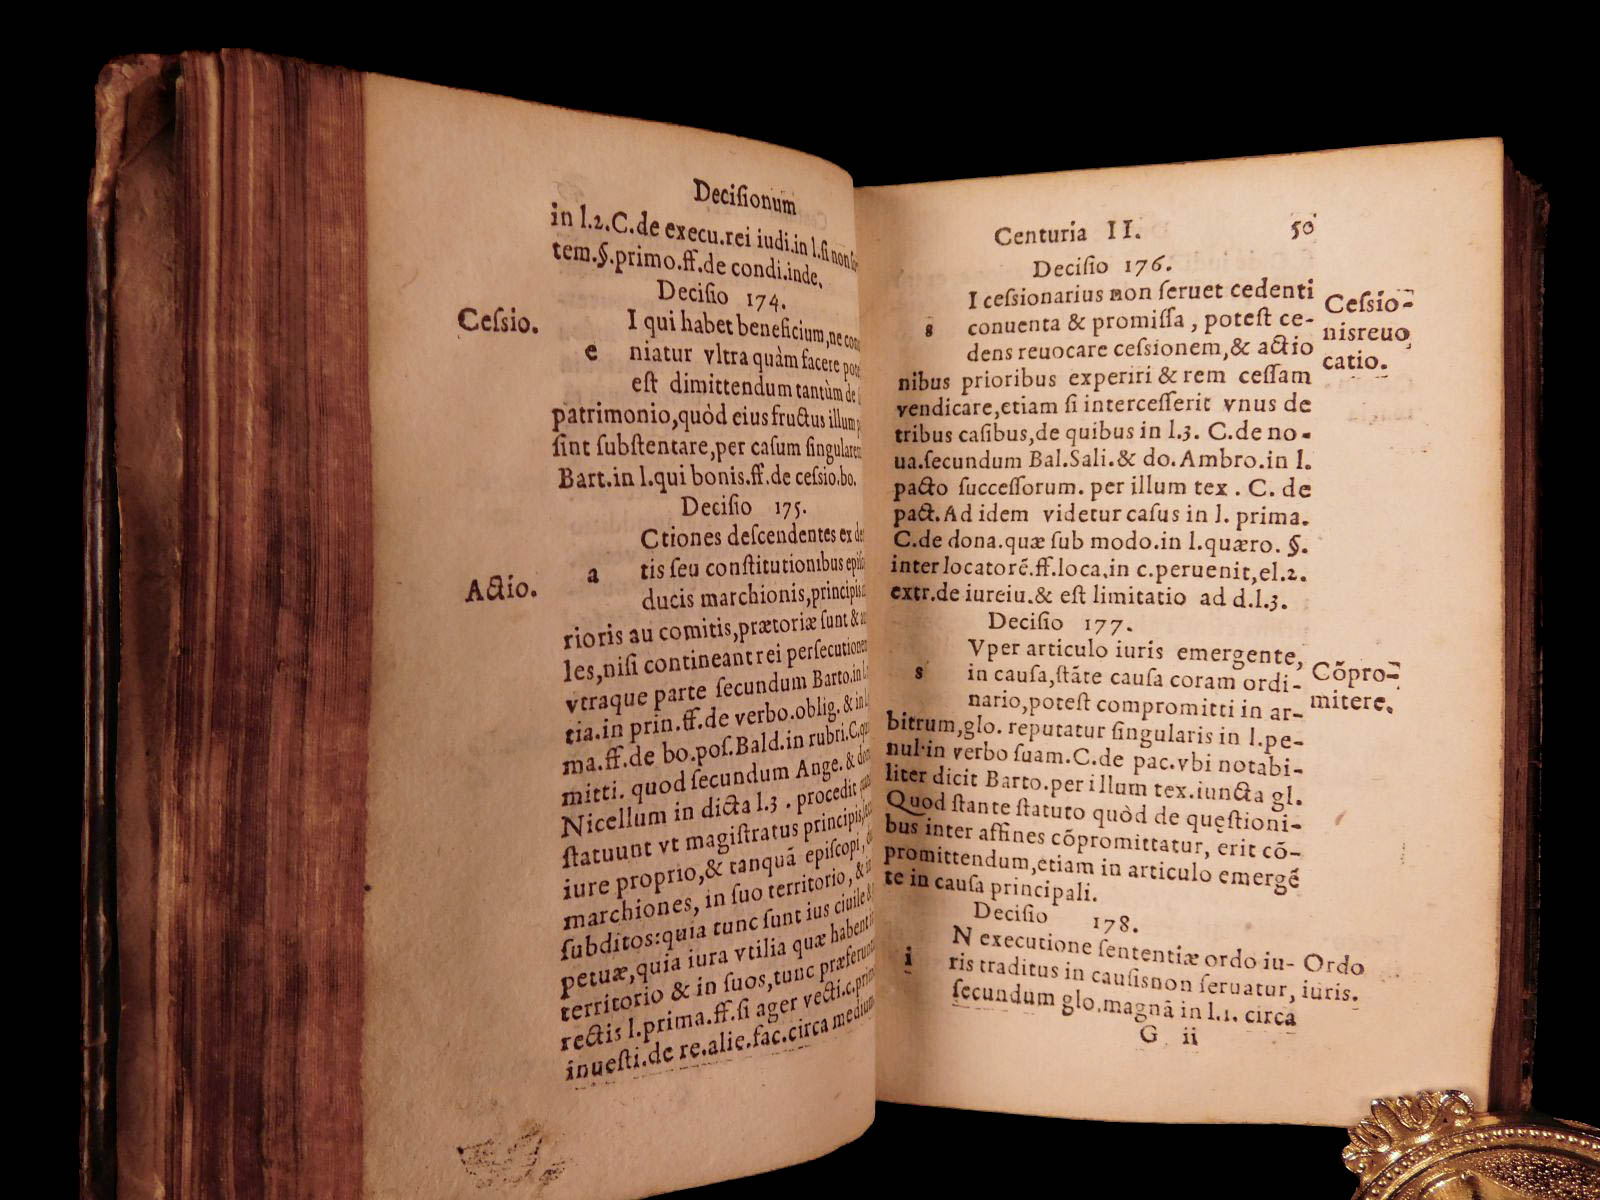 Deciſionum
in l.2.C.de execu.rei iudi.in l.ſi non
tem.§.primo.ff.de condi.inde.
Deciſio 174.
Ceſsio.
I qui habet beneficium,ne
e niatur vltra quàm facere
eſt dimittendum tantùm de
patrimonio,quòd eius fructus illum
ſint ſubſtentare,per caſum ſingularem
Bart.in l.qui bonis.ff.de ceſsio.bo.
Deciſio 175.
Ctiones deſcendentes ex
Actio.
a tis ſeu conſtitutionibus
ducis marchionis,principis
rioris au comitis,prætoriæ ſunt &
les,niſi contineant rei perſecutionem
vtraque parte ſecundum Barto.in
tia.in prin.ff.de verbo.oblig. & in
ma.ff.de bo.poſ.Bald.in rubri.C.
mitti. quod ſecundum Ange. &
Nicellum in dicta l.3 . procedit
ſtatuunt vt magiſtratus principis,
iure proprio,& tanquã epiſcopi,
marchiones, in ſuo territorio, &
ſubditos:quia tunc ſunt ius ciuile
petuæ,quia iura vtilia quæ habent
territorio & in ſuos,tunc
rectis l.prima.ff.ſi ager vecti.c.
inueſti.de re.alie.fac.circa medium
Centuria II. 50
Deciſio 176.
I ceſsionarius non ſeruet cedenti
s conuenta & promiſſa , poteſt ce-
dens reuocare ceſsionem,& actio
Ceſsio-
nisreuo
catio.
nibus prioribus experiri & rem ceſſam
vendicare,etiam ſi interceſſerit vnus de
tribus caſibus,de quibus in l.3. C.de no-
ua.ſecundum Bal.Sali.& do.Ambro.in l.
pacto ſucceſſorum. per illum tex . C. de
pact.Ad idem videtur caſus in l. prima.
C.de dona.quæ ſub modo.in l.quæro. §.
inter locatorẽ.ff.loca.in c.peruenit,el.2.
extr.de iureiu.& eſt limitatio ad d.l.3.
Deciſio 177.
Vper articulo iuris emergente,
s in cauſa,ſtãte cauſa coram ordi-
nario,poteſt compromitti in ar-
Cõpro-
mitere.
bitrum,glo. reputatur ſingularis in l.pe-
nul·in verbo ſuam.C.de pac.vbi notabi-
liter dicit Barto.per illum tex.iuncta gl.
Quod ſtante ſtatuto quòd de quęſtioni-
bus inter affines cõpromittatur, erit cõ-
promittendum,etiam in articulo emergẽ
te in cauſa principali.
Deciſio 178.
N executione ſententiæ ordo iu-
i ris traditus in cauſisnon ſeruatur,
ſecundum glo.magnã in l.1. circa
Ordo
iuris.
G ii